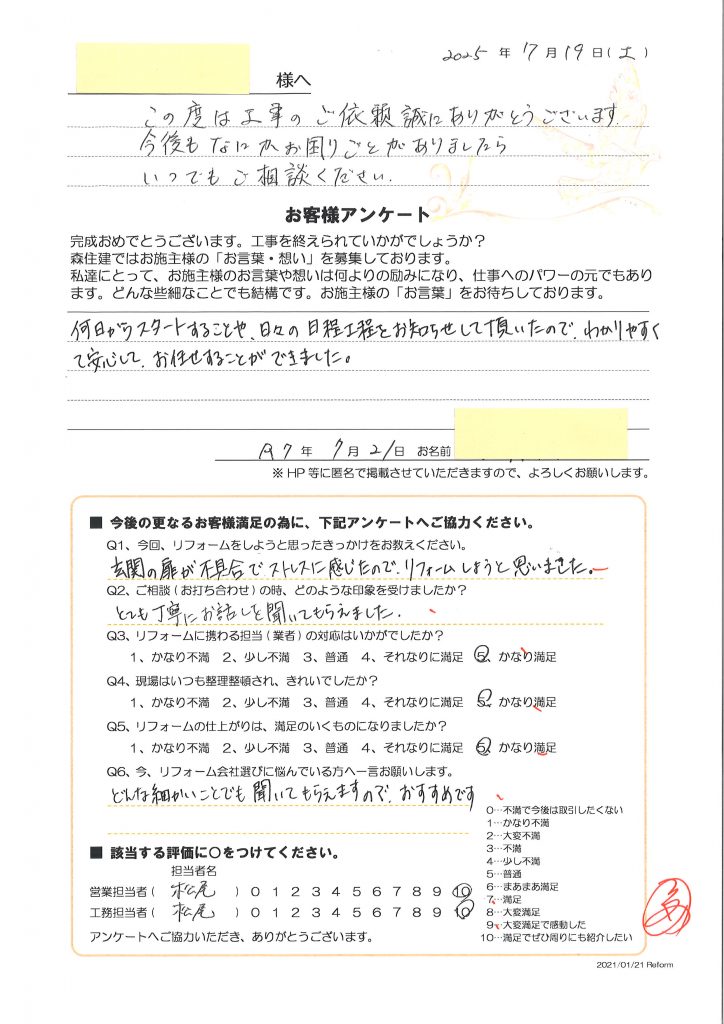 2025 年 7 月 19 日(土)
様へ
この度は工事のご依頼誠にありがとうございます.
今後もなにかお困りごとがありましたら
いつでもご相談ください.
お客様アンケート
完成おめでとうございます。工事を終えられていかがでしょうか？
森住建ではお施主様の「お言葉・想い」を募集しております。
私達にとって、お施主様のお言葉や想いは何よりの励みになり、仕事へのパワーの元でもあり
ます。どんな些細なことでも結構です。お施主様の「お言葉」をお待ちしております。
何日からスタートすることや、日々の日程工程をお知らせして頂いたので、わかりやすく
て安心して、お任せすることができました。
R7 年 7 月 21 日 お名前
※ HP 等に匿名で掲載させていただきますので、よろしくお願いします。
■ 今後の更なるお客様満足の為に、下記アンケートへご協力ください。
Q1、今回、リフォームをしようと思ったきっかけをお教えください。
玄関の扉が不具合でストレスに感じたので、リフォームしようと思いました。
Q2、ご相談（お打ち合わせ）の時、どのような印象を受けましたか？
とても丁寧にお話しを聞いてもらえました.
Q3、リフォームに携わる担当（業者）の対応はいかがでしたか？
1、かなり不満 2、少し不満 3、普通 4、それなりに満足 5、かなり満足
Q4、現場はいつも整理整頓され、きれいでしたか？
1、かなり不満 2、少し不満 3、普通 4、それなりに満足 5、かなり満足
Q5、リフォームの仕上がりは、満足のいくものになりましたか？
1、かなり不満 2、少し不満 3、普通 4、それなりに満足 5、かなり満足
Q6、今、リフォーム会社選びに悩んでいる方へ一言お願いします。
どんな細かいことでも聞いてもらえますので、おすすめです
0…不満で今後は取引したくない
1…かなり不満
2…大変不満
3…不満
4…少し不満
5…普通
6…まあまあ満足
7…満足
8…大変満足
9…大変満足で感動した
10…満足でぜひ周りにも紹介したい
■ 該当する評価に○をつけてください。
担当者名
営業担当者（ 松尾 ）0 1 2 3 4 5 6 7 8 9 10
工務担当者（ 松尾 ）0 1 2 3 4 5 6 7 8 9 10
アンケートへご協力いただき、ありがとうございます。
2021/01/21 Reform